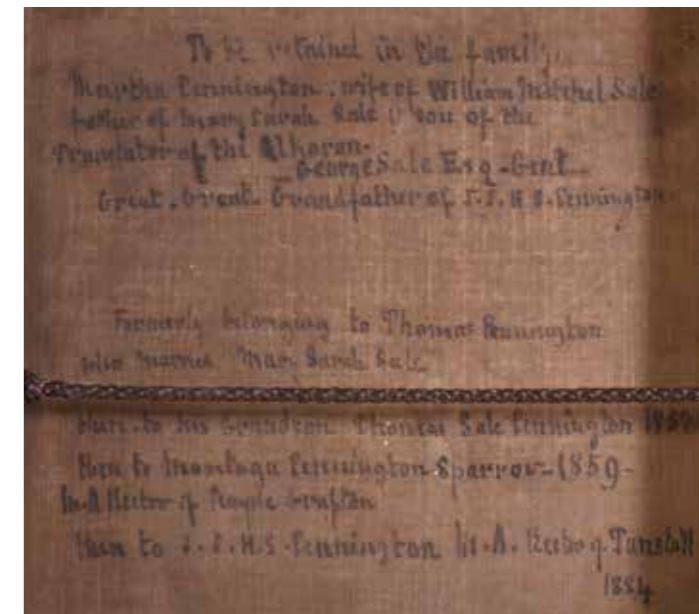 To be retained in the family.
Martha Pennington . wife of William Mitchel Sale
father of Mary Sarah Sale & son of the
Translator of the Alkoran.
George Sale Esq - Gent
Great . Great Grandfather of S. H. S. Pennington.
Formerly belonging to Thomas Pennington
who married Mary Sarah Sale
then to his Grandson Thomas Sale Pennington
then to Montagu Pennington Sparrow - 1859 -
M.A Rector of Temple Grafton
then to H. S. Pennington M. A. Rector of Tunstall
1884